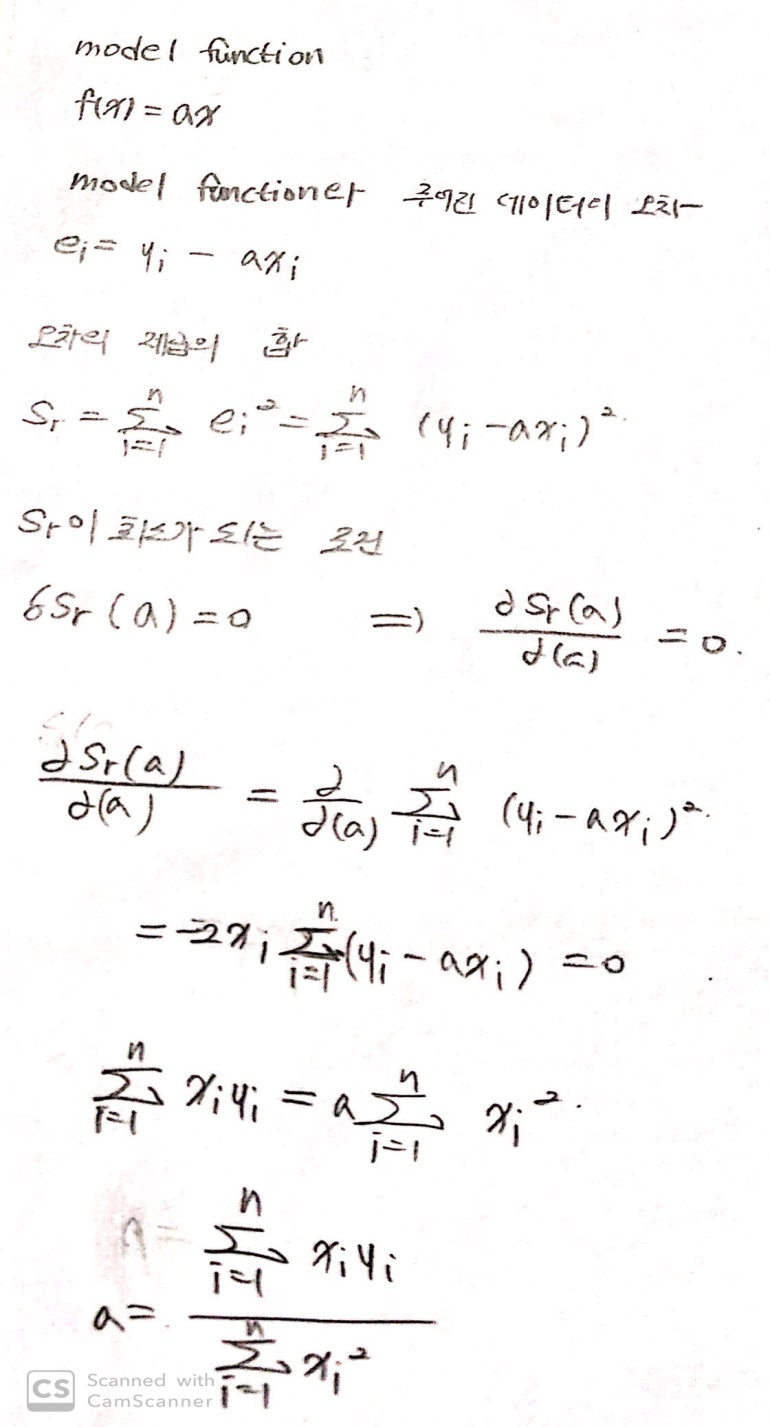 model function
f(x) = ax
model function과 주어진 데이터의 오차
e_i = y_i - ax_i
오차의 제곱의 합
S_r = Σ_{i=1}^{n} e_i² = Σ_{i=1}^{n} (y_i - ax_i)²
Sr이 최소가 되는 조건
δSr(a) = 0 ⇒ ∂Sr(a)/∂(a) = 0.
∂Sr(a)/∂(a) = ∂/∂(a) Σ_{i=1}^{n} (y_i - ax_i)²
= -2x_i Σ_{i=1}^{n} (y_i - ax_i) = 0
Σ_{i=1}^{n} x_i y_i = a Σ_{i=1}^{n} x_i².
a = Σ_{i=1}^{n} x_i y_i / Σ_{i=1}^{n} x_i²
CS Scanned with
CamScanner